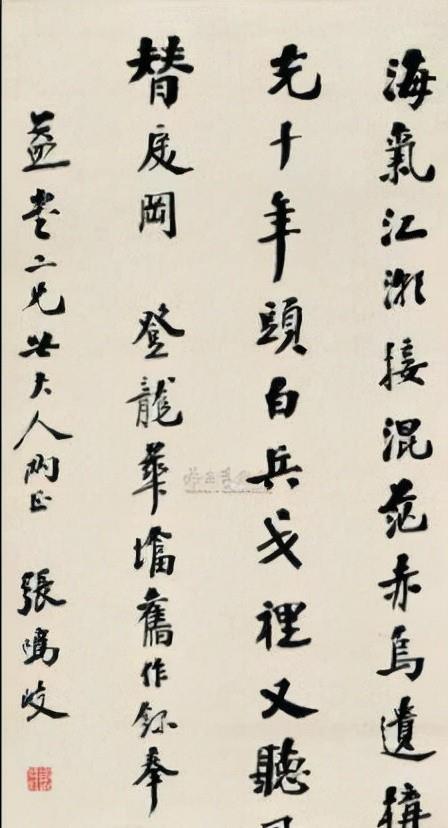 海氣江潮接混茫赤烏遺構
光十年頭白兵戈裡又聽
替戾岡 登龍華墖舊作錄奉
益二兄世大人兩正 張鳴岐